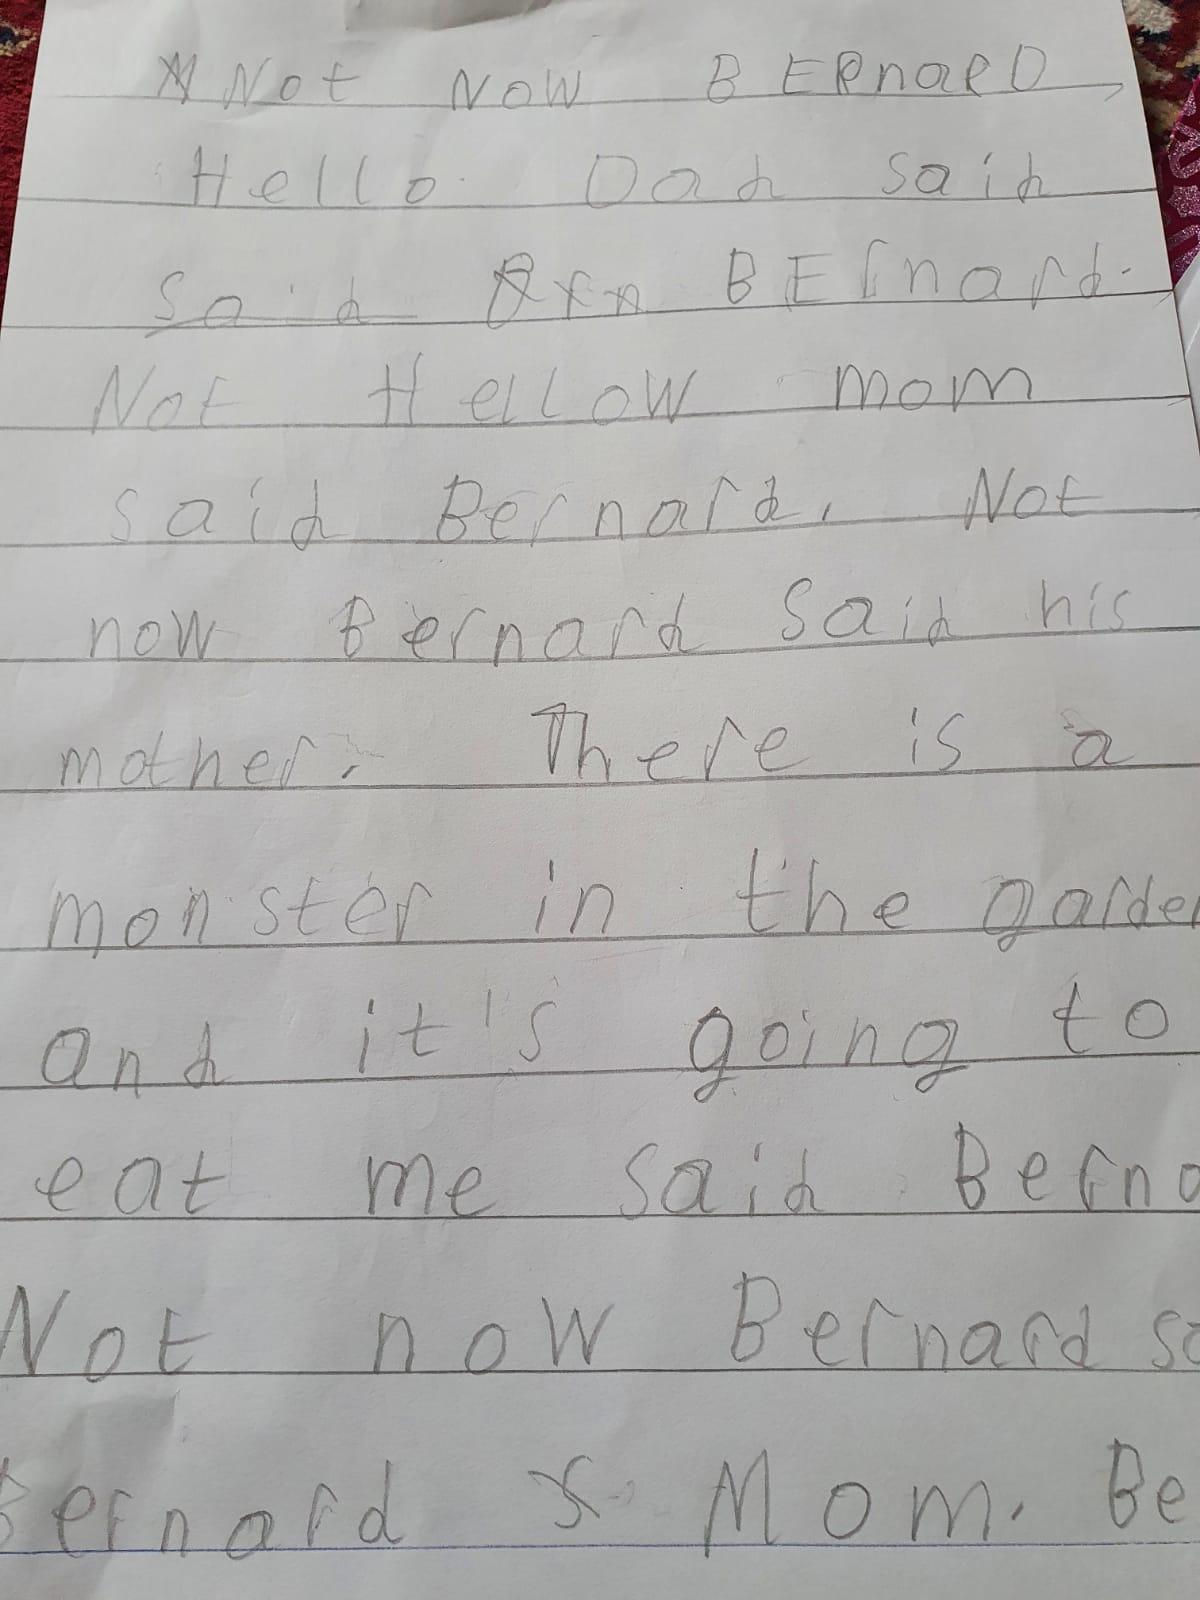 Not NOW BERnaRD,
Hello Dad said
said BERnard.
Not HelLoW mom
said Bernard. Not
now Bernard said his
mother. There is a
monster in the garden
and it's going to
eat me said Berna
Not now Bernard sa
Bernard Mom. Be